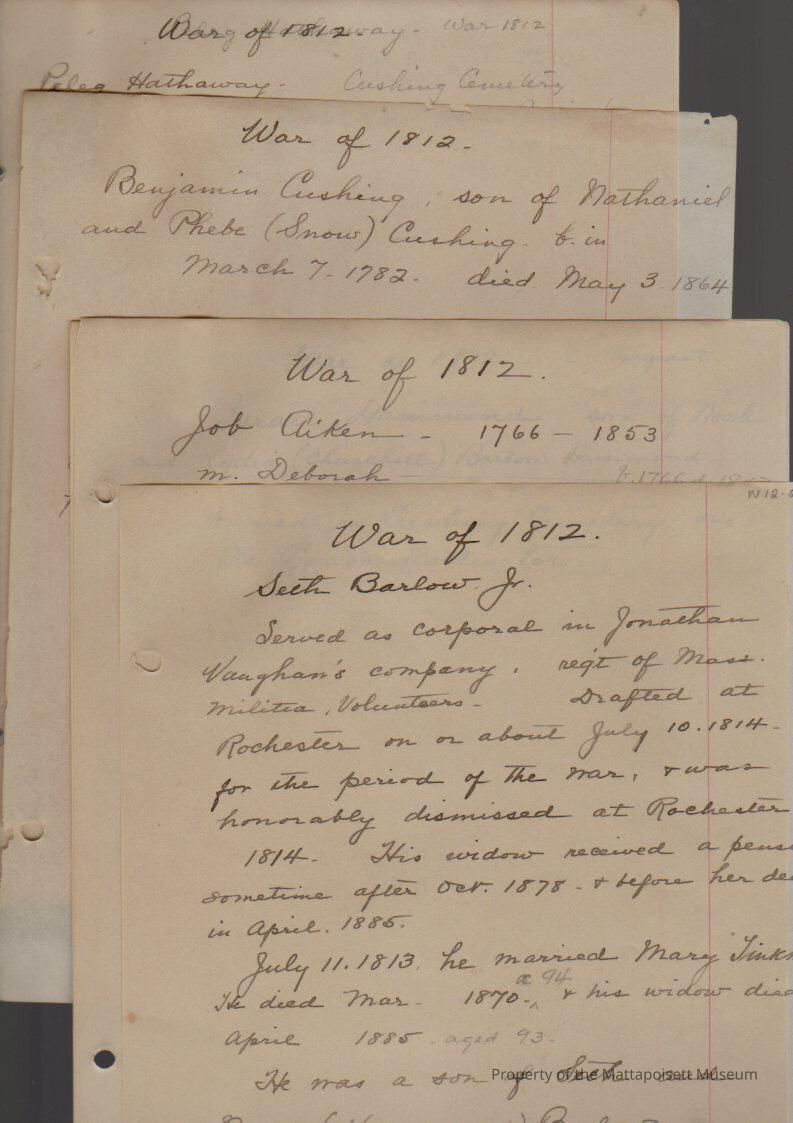 War of 1812.
War 1812
Peleg Hathaway - Cushing Cemetery
War of 1812.
Benjamin Cushing, son of Nathaniel
and Phebe (Snow) Cushing. b. in
March 7 - 1782. died May 3. 1864
War of 1812.
Job Aiken - 1766 - 1853
m. Deborah
War of 1812.
Seth Barlow Jr.
Served as corporal in Jonathan
Vaughan's company, reg't of Mass.
Militia, Volunteers - Drafted at
Rochester on or about July 10. 1814 -
for the period of the war, & was
honorably dismissed at Rochester
1814 - His widow received a
sometime after Oct. 1878 - & before her
in April. 1885.
July 11. 1813, he married Mary
He died Mar. 1870 - a 94 & his widow died
April 1885. aged 93 -
He was a son of Seth
Property of the Mattapoisett Museum